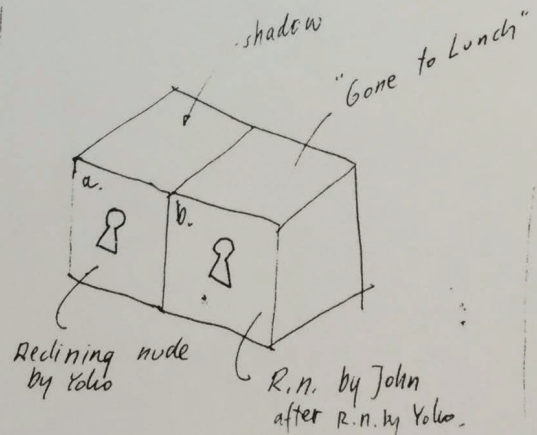 shadow
"Gone to Lunch"
a.
b.
Reclining nude
by Yoko
R.n. by John
after R.n. by Yoko.